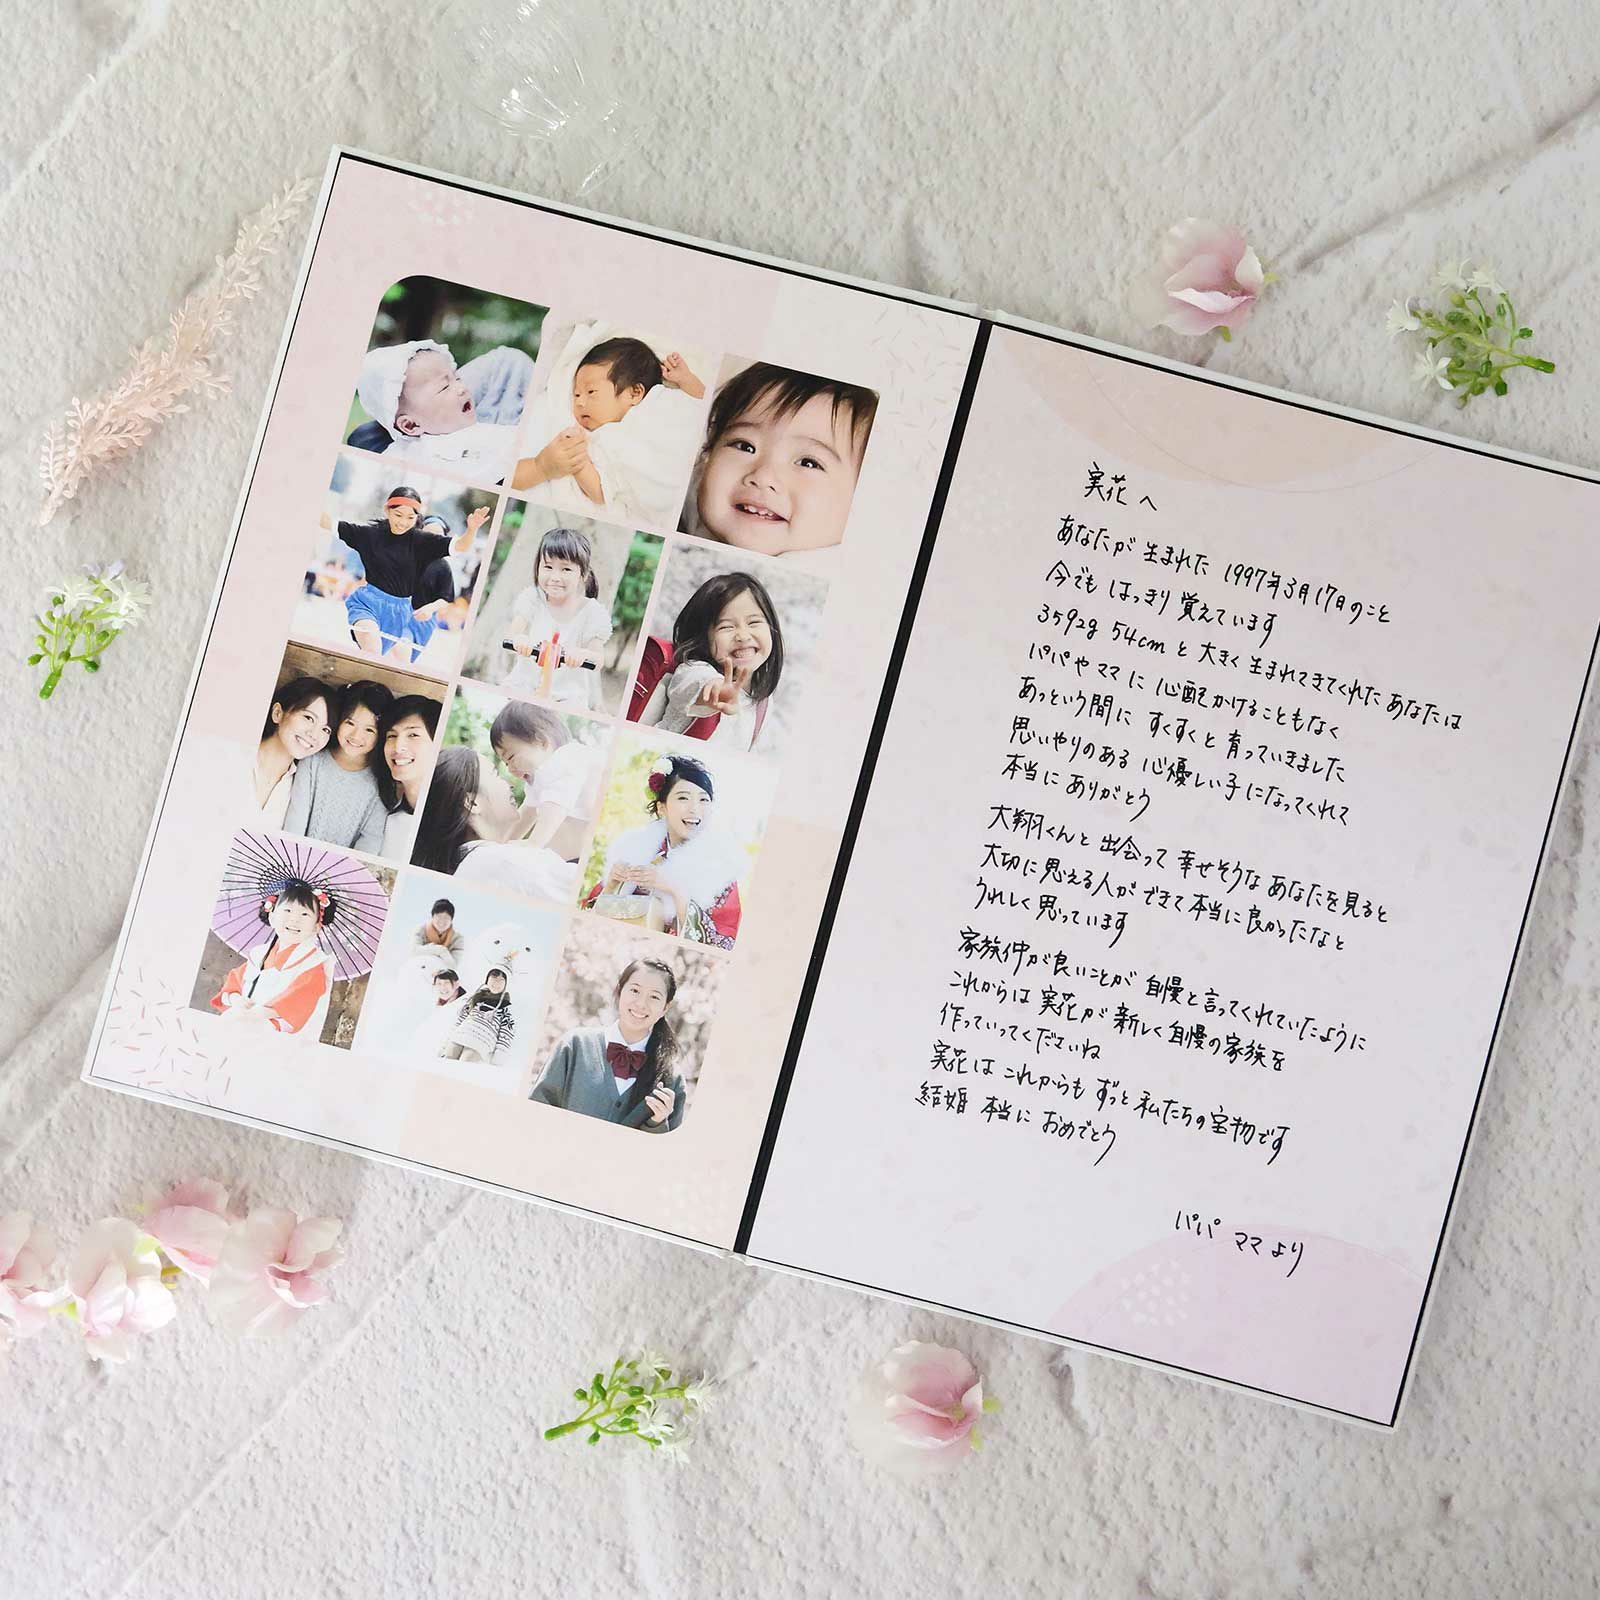 実花へ
あなたが 生まれた 1997年3月17日のこと
今でも はっきり 覚えています
3592g 54cm と 大きく 生まれてきてくれた あなたは
パパや ママ に 心配 かけることもなく
あっという間に すくすくと 育っていきました
思いやりのある 心優しい子になってくれて
本当に ありがとう
大翔くんと 出会って 幸せそうな あなたを見ると
大切に思える人ができて 本当に良かったなと
うれしく思っています
家族仲が良いことが 自慢と言ってくれていたように
これからは 実花が 新しく自慢の家族を
作っていってくださいね
実花は これからも ずっと 私たちの宝物です
結婚 本当に おめでとう
パパ ママより